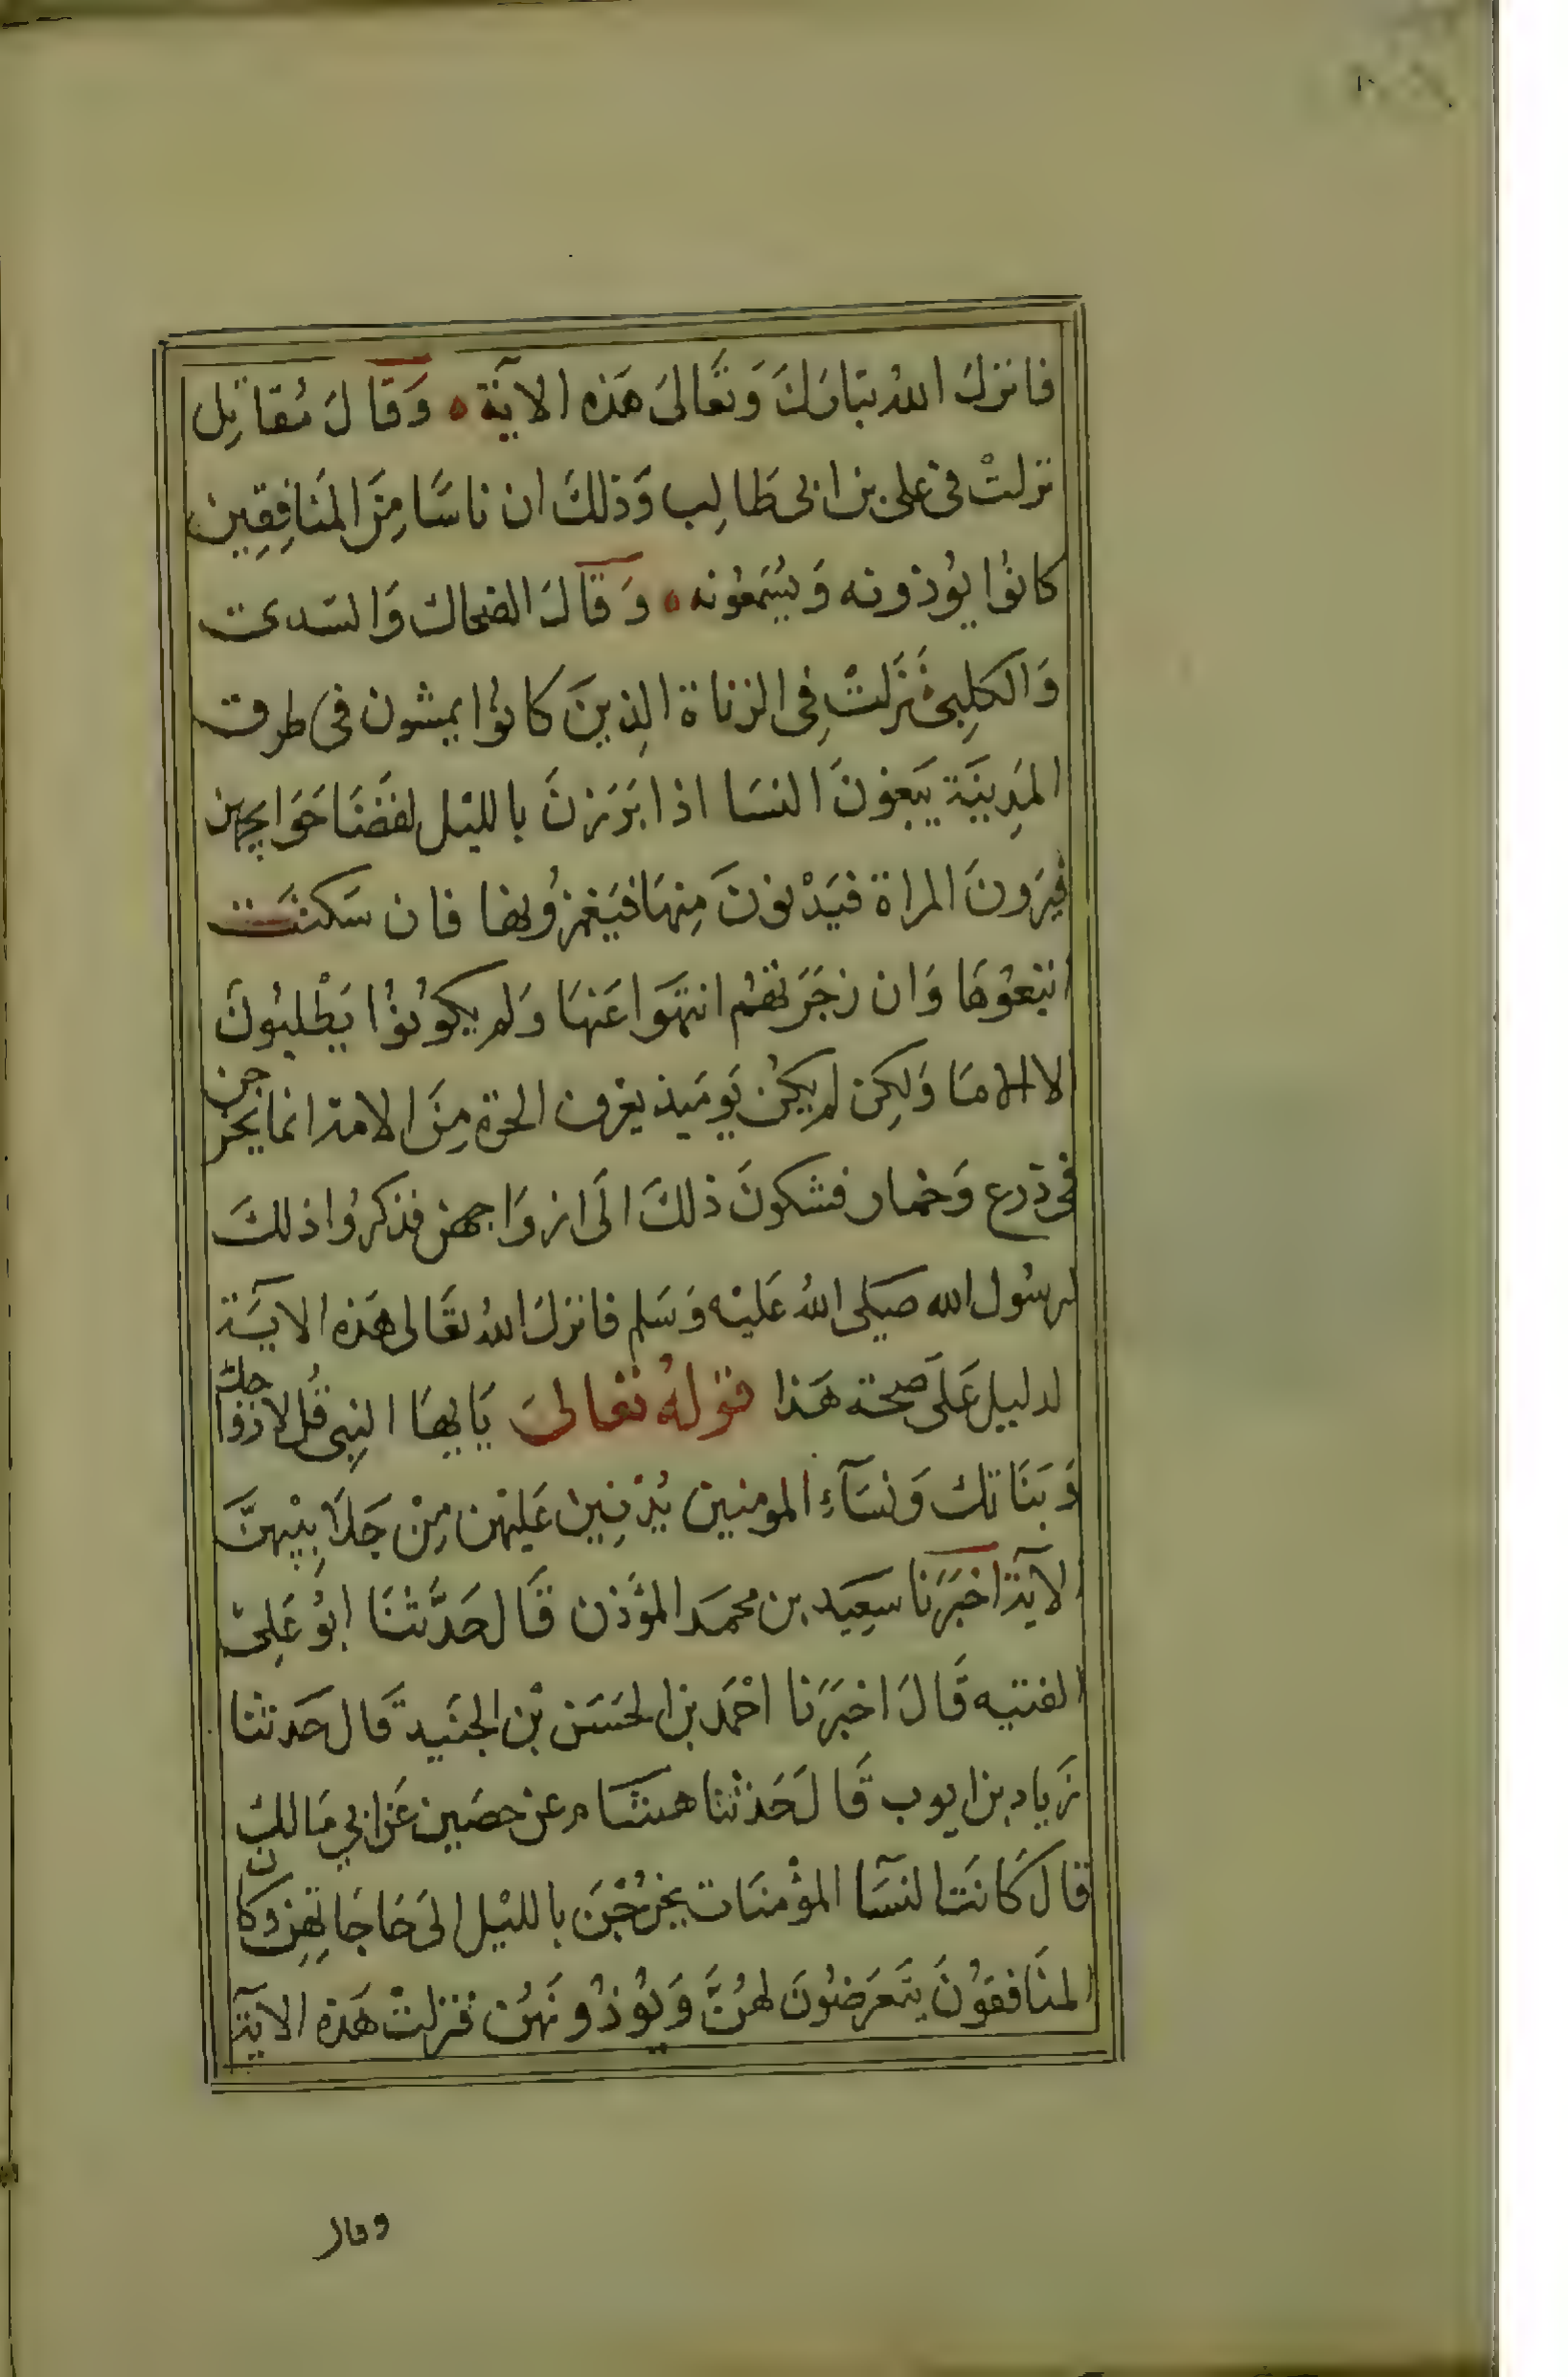 فانزلَ اللهُ تبارَكَ وَتَعَالىَ هَذه الايَة ه وَقَالَ مُقاتِل
نزلتْ في على بن ابى طَالِب وَذلكَ ان ناسًا مِنَ المنَافِقِين
كانُوا يُوذونه وَيُسْمَعُونه ه وَقَالَ الضحاك وَالسَدى
وَالكلِبى نَزَلتْ فِى الزناة الذِينَ كانُوا يمشون فى طرق
المَدِينَة يَبَغونَ النسَا اذا بَرَزنَ بالليْل لقضَا حَوَايجهن
فيَرونَ المراة فيَدْنونَ مِنهَا فيَغمزُونها فان سَكتَت
اتبعُوهَا وَان زجَرَتهُم انتهَوا عَنهَا وَلم يكوُنوُا يَطْلبُونَ
لا الامَا وَلكِن لم يكن يَومَيذ يعرف الحرة مِنَ الامة انما يخرجن
فى درع وَخمار فشكونَ ذلكَ الَى ازوَاجهن فذكرُوا ذلكَ
لرسُول الله صَلى اللهُ عَليْه وَسَلم فانزلَ اللهُ تعَالى هَذه الايَة
لدليل عَلَى صحة هَذا قولهُ تعَالىَ يَا يهَا النبِى قُل لازواجك
وَبَنَاتك وَنسَآءِ المومنين يُدْنِين عَليهْن مِنْ جَلاَبِيْبهنَّ
لآية اخبَرَنا سَعِيَد بن محمد المؤَذن قَال حَدَّثنَا ابُو عَلِى
الفقيه قَالَ اخبَرَنا احْمَد بن الحَسَن بْن الجنَيد قَال حَدثنا
زَياد بن ايوب قَالَ حَدثنا هشَام عن حصَين عَن ابي مَالك
قالَ كَانَت النسَآ المؤمنَات يخرُجْنَ بالليْل الىَ حَاجَاتِهِن وكان
المنَافقوُنَ يتَعَرَضُونَ لهُنَّ وَيُوذُونَهُن فنزلتْ هَذه الآية
وقال